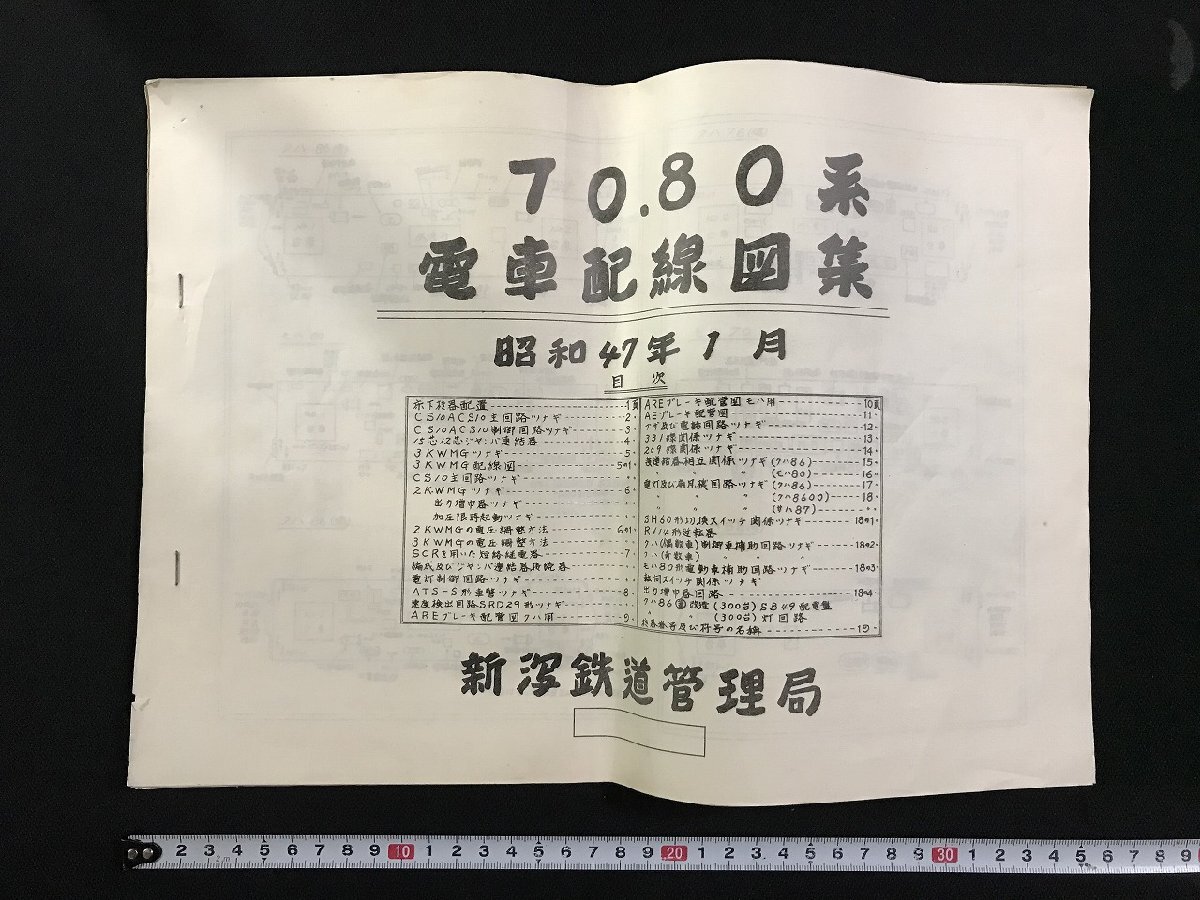 70.80系
電車配線図集
昭和47年1月
目次
床下機器配置 1頁
CS10ACS10主回路ツナギ 2〃
CS10ACS10制御回路ツナギ 3〃
15芯.12芯ジャンパ連結器 4〃
3KWMGツナギ 5〃
3KWMG配線図 5の1〃
CS10主回路ツナギ 〃〃
2KWMGツナギ 6〃
出力増中器ツナギ 〃〃
加圧限時起動ツナギ 〃〃
2KWMGの電圧調整方法 6の1〃
3KWMGの電圧調整方法 〃〃
SCRを用いた短絡継電器 7〃
編成及びジャンパ連結器
電灯制御回路ツナギ 〃〃
ATS-S形車警ツナギ 8〃
速度検出回路SRD29形ツナギ 〃〃
AREブレーキ配管図クハ用 9〃
AREブレーキ配管図モハ用 10頁
AEブレーキ配管図 11〃
ブザ及び電話回路ツナギ 12〃
331線関係ツナギ 13〃
209線関係ツナギ 14〃
相互関係ツナギ(クハ86) 15〃
〃 〃 (モハ80) 16〃
電灯及び扇風機回路ツナギ(クハ86) 17〃
〃 〃 (クハ8600) 18〃
〃 〃 (サハ87) 〃〃
SH60形切換スイッチ関係ツナギ 18の1〃
R114形逆転器
クハ(偶数車)制御車補助回路ツナギ 18の2〃
クハ(奇数車) 〃 〃
モハ80形電動車補助回路ツナギ 18の3〃
転向スイッチ関係ツナギ
出力増中器回路 18の4
クハ86 改造(300台)SB49配電盤
〃 (300台)灯回路
機器番号及び符号の名称 19〃
新潟鉄道管理局
2 3 4 5 6 7 8 9 10 1 2 3 4 5 6 7 8 9 20 1 2 3 4 5 6 7 8 9 30 1 2 3 4 5 6 7 8 9